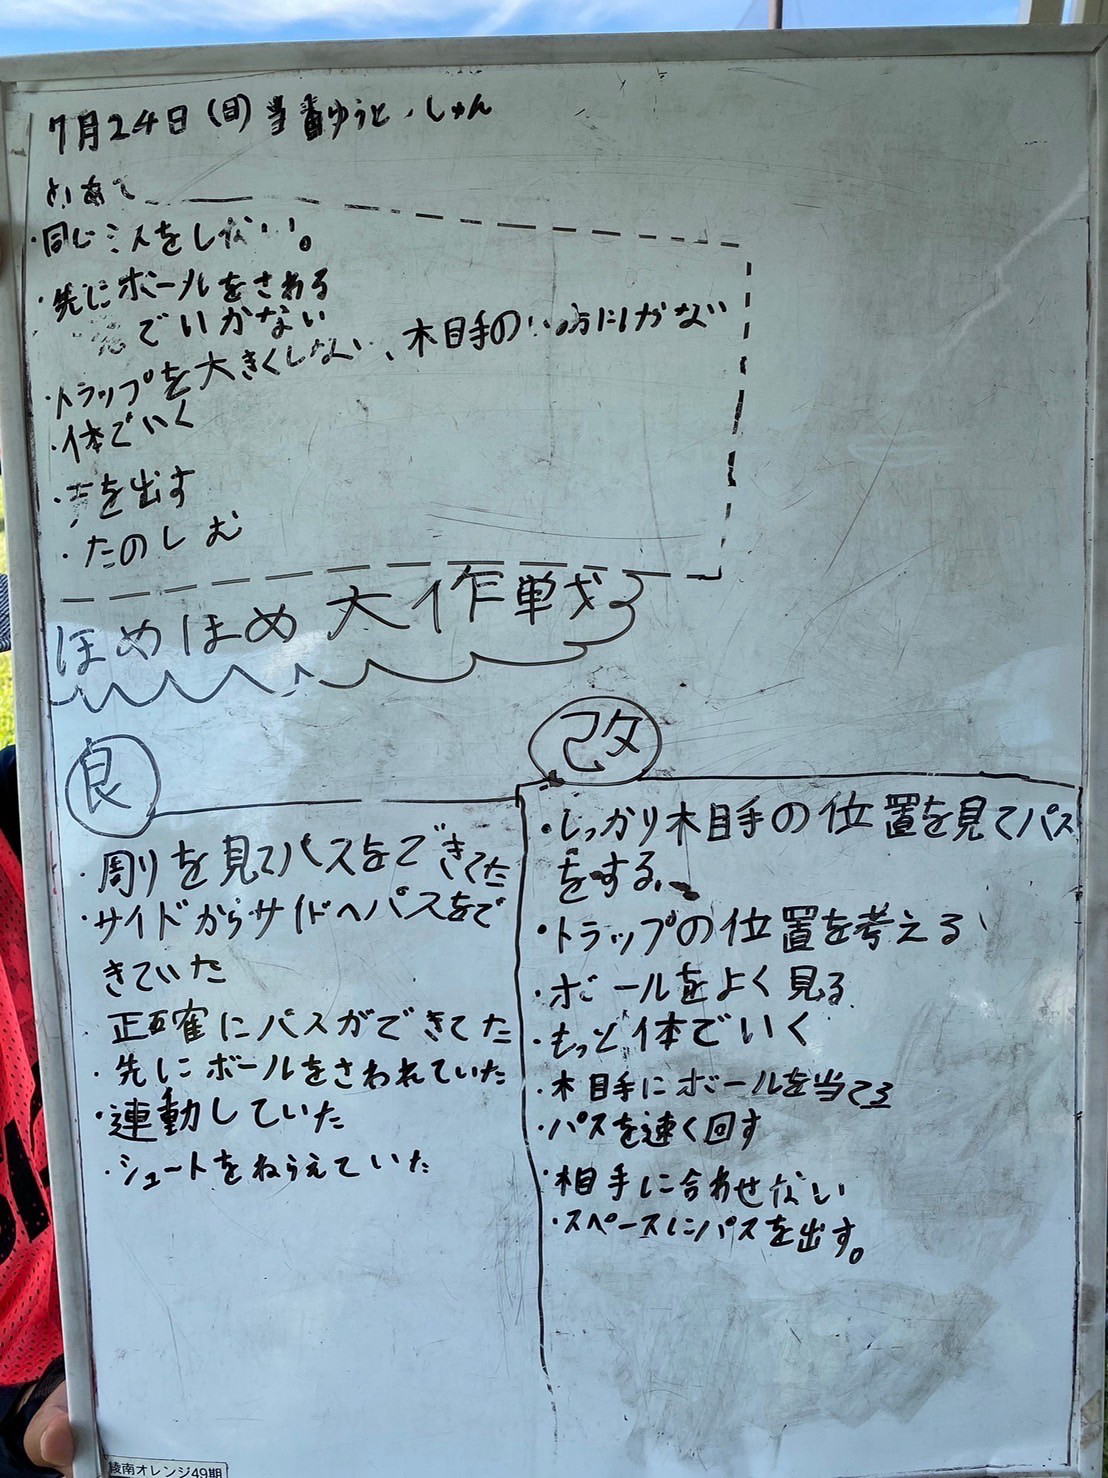 7月24日(日)当番ゆうと・しゅん
めあて
・同じミスをしない。
・先にボールをさわる
でいかない
・トラップを大きくしない、相手のいる方にいかない
・体でいく
・声を出す
・たのしむ
ほめほめ大作戦
良
・周りを見てパスをできてた
・サイドからサイドへパスをで
きていた
正確にパスができてた
・先にボールをさわれていた
・連動していた
・シュートをねらえていた
改
・しっかり相手の位置を見てパス
をする、
・トラップの位置を考える
・ボールをよく見る
・もっと体でいく
・相手にボールを当てる
・パスを速く回す
・相手に合わせない
・スペースにパスを出す。
綾南オレンジ49期